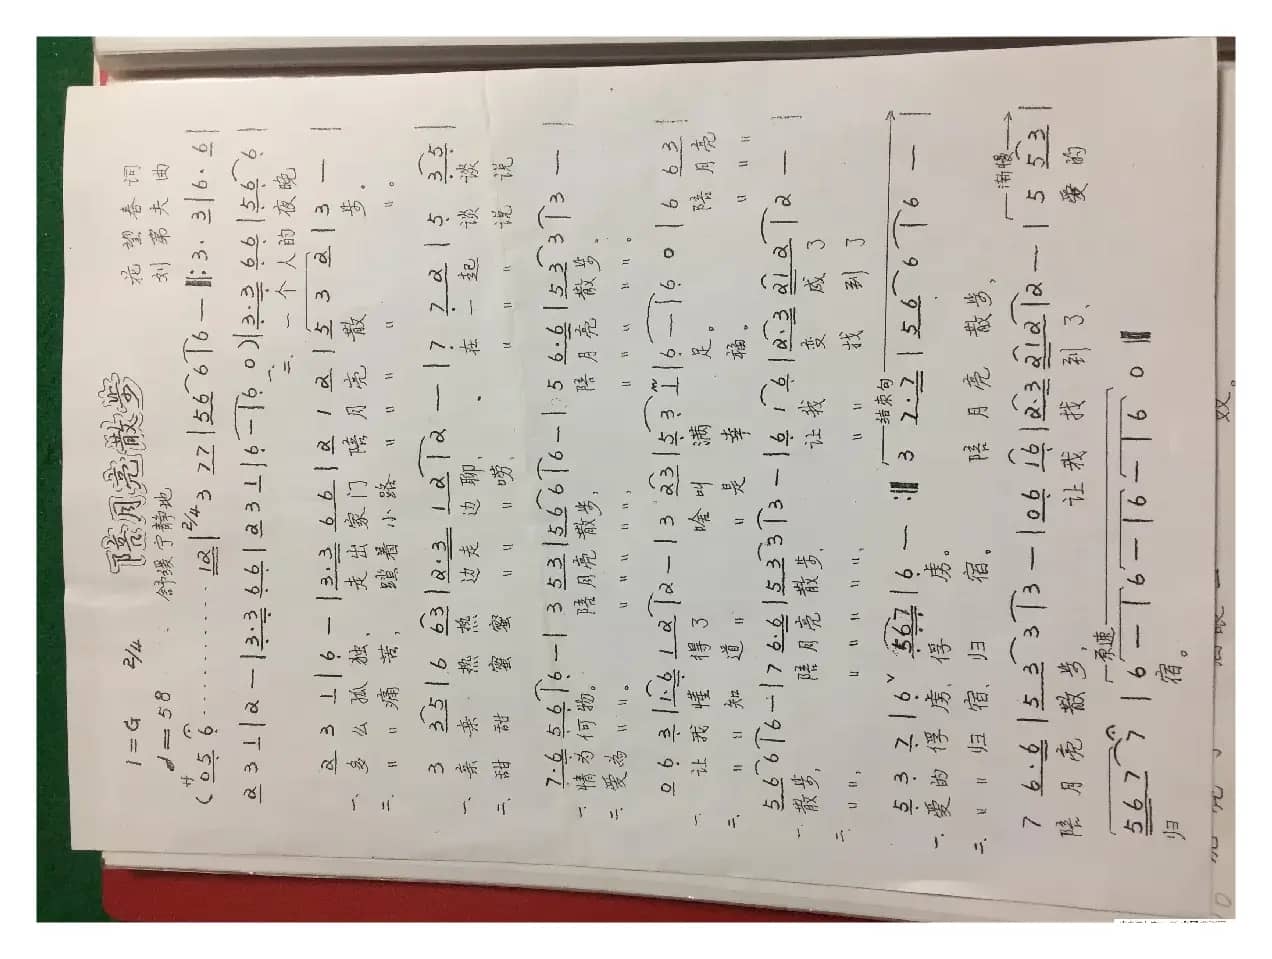 陪月亮散步
1=G 2/4
♩=58 舒缓宁静地
花望春 词
刘弟夫 曲
(0 5 6 ………… 1 2 | 2/4 3 7 7 | 5 6 6 | 6 — ‖: 3·3 3 | 6·6 |
2 3 1 | 2 — | 3·3 6 6 | 2 3 1 | 6 — | 6 0 ) | 3·3 6 6 | 5 6 6 |
一、二、一个人的夜晚
2 3 1 | 6 — | 3·3 6 6 | 2 1 2 | 5 3 2 | 3 — |
一、多么孤独、走出家门陪月亮散步。
二、〃〃痛苦,踏着小路〃〃〃〃〃。
3 3 5 | 6 6 3 | 2·3 1 2 | 2 — | 7 7 2 | 5 3 5 |
一、亲亲热热边走边聊、在一起谈谈
二、甜甜蜜蜜〃〃〃唠,〃〃〃说说
7·6 5 6 | 6 — | 3 5 3 | 5 6 6 | 6 — | 5 6·6 | 5 3 3 | 3 — |
一、情为何物。陪月亮散步,陪月亮散步。
二、爱为〃〃。〃〃〃〃〃,〃〃〃〃〃。
0 6 3 | 1·6 1 2 | 2 — | 3 2 3 | 5 3 1 | 6 — | 6 0 | 6 6 3 |
一、让我懂得了啥叫满足。陪月亮
二、〃〃知道〃〃是幸福。〃〃〃
5 6 6 | 6 — | 7 6·6 | 5 3 3 | 3 — | 6 1 6 | 2·3 2 1 2 | 2 — |
一、散步,陪月亮散步,让我变成了
二、〃〃,〃〃〃〃〃,〃〃找到了
5 3 7 | 6 ˅ 5 6 7 | 6 — :‖ 结束句 3 2·7 | 5 6 6 | 6 — |
一、爱的俘虏、俘虏。陪月亮散步,
二、〃〃归宿、归宿。
7 6·6 | 5 3 3 | 3 — | 0 6 1 6 | 2·3 2 1 2 | 2 — | 渐慢 5 5 3 |
陪月亮散步,让我找到了、爱的
5 6 7 7 | 原速 6 — | 6 — | 6 — | 6 0 ‖
归宿。